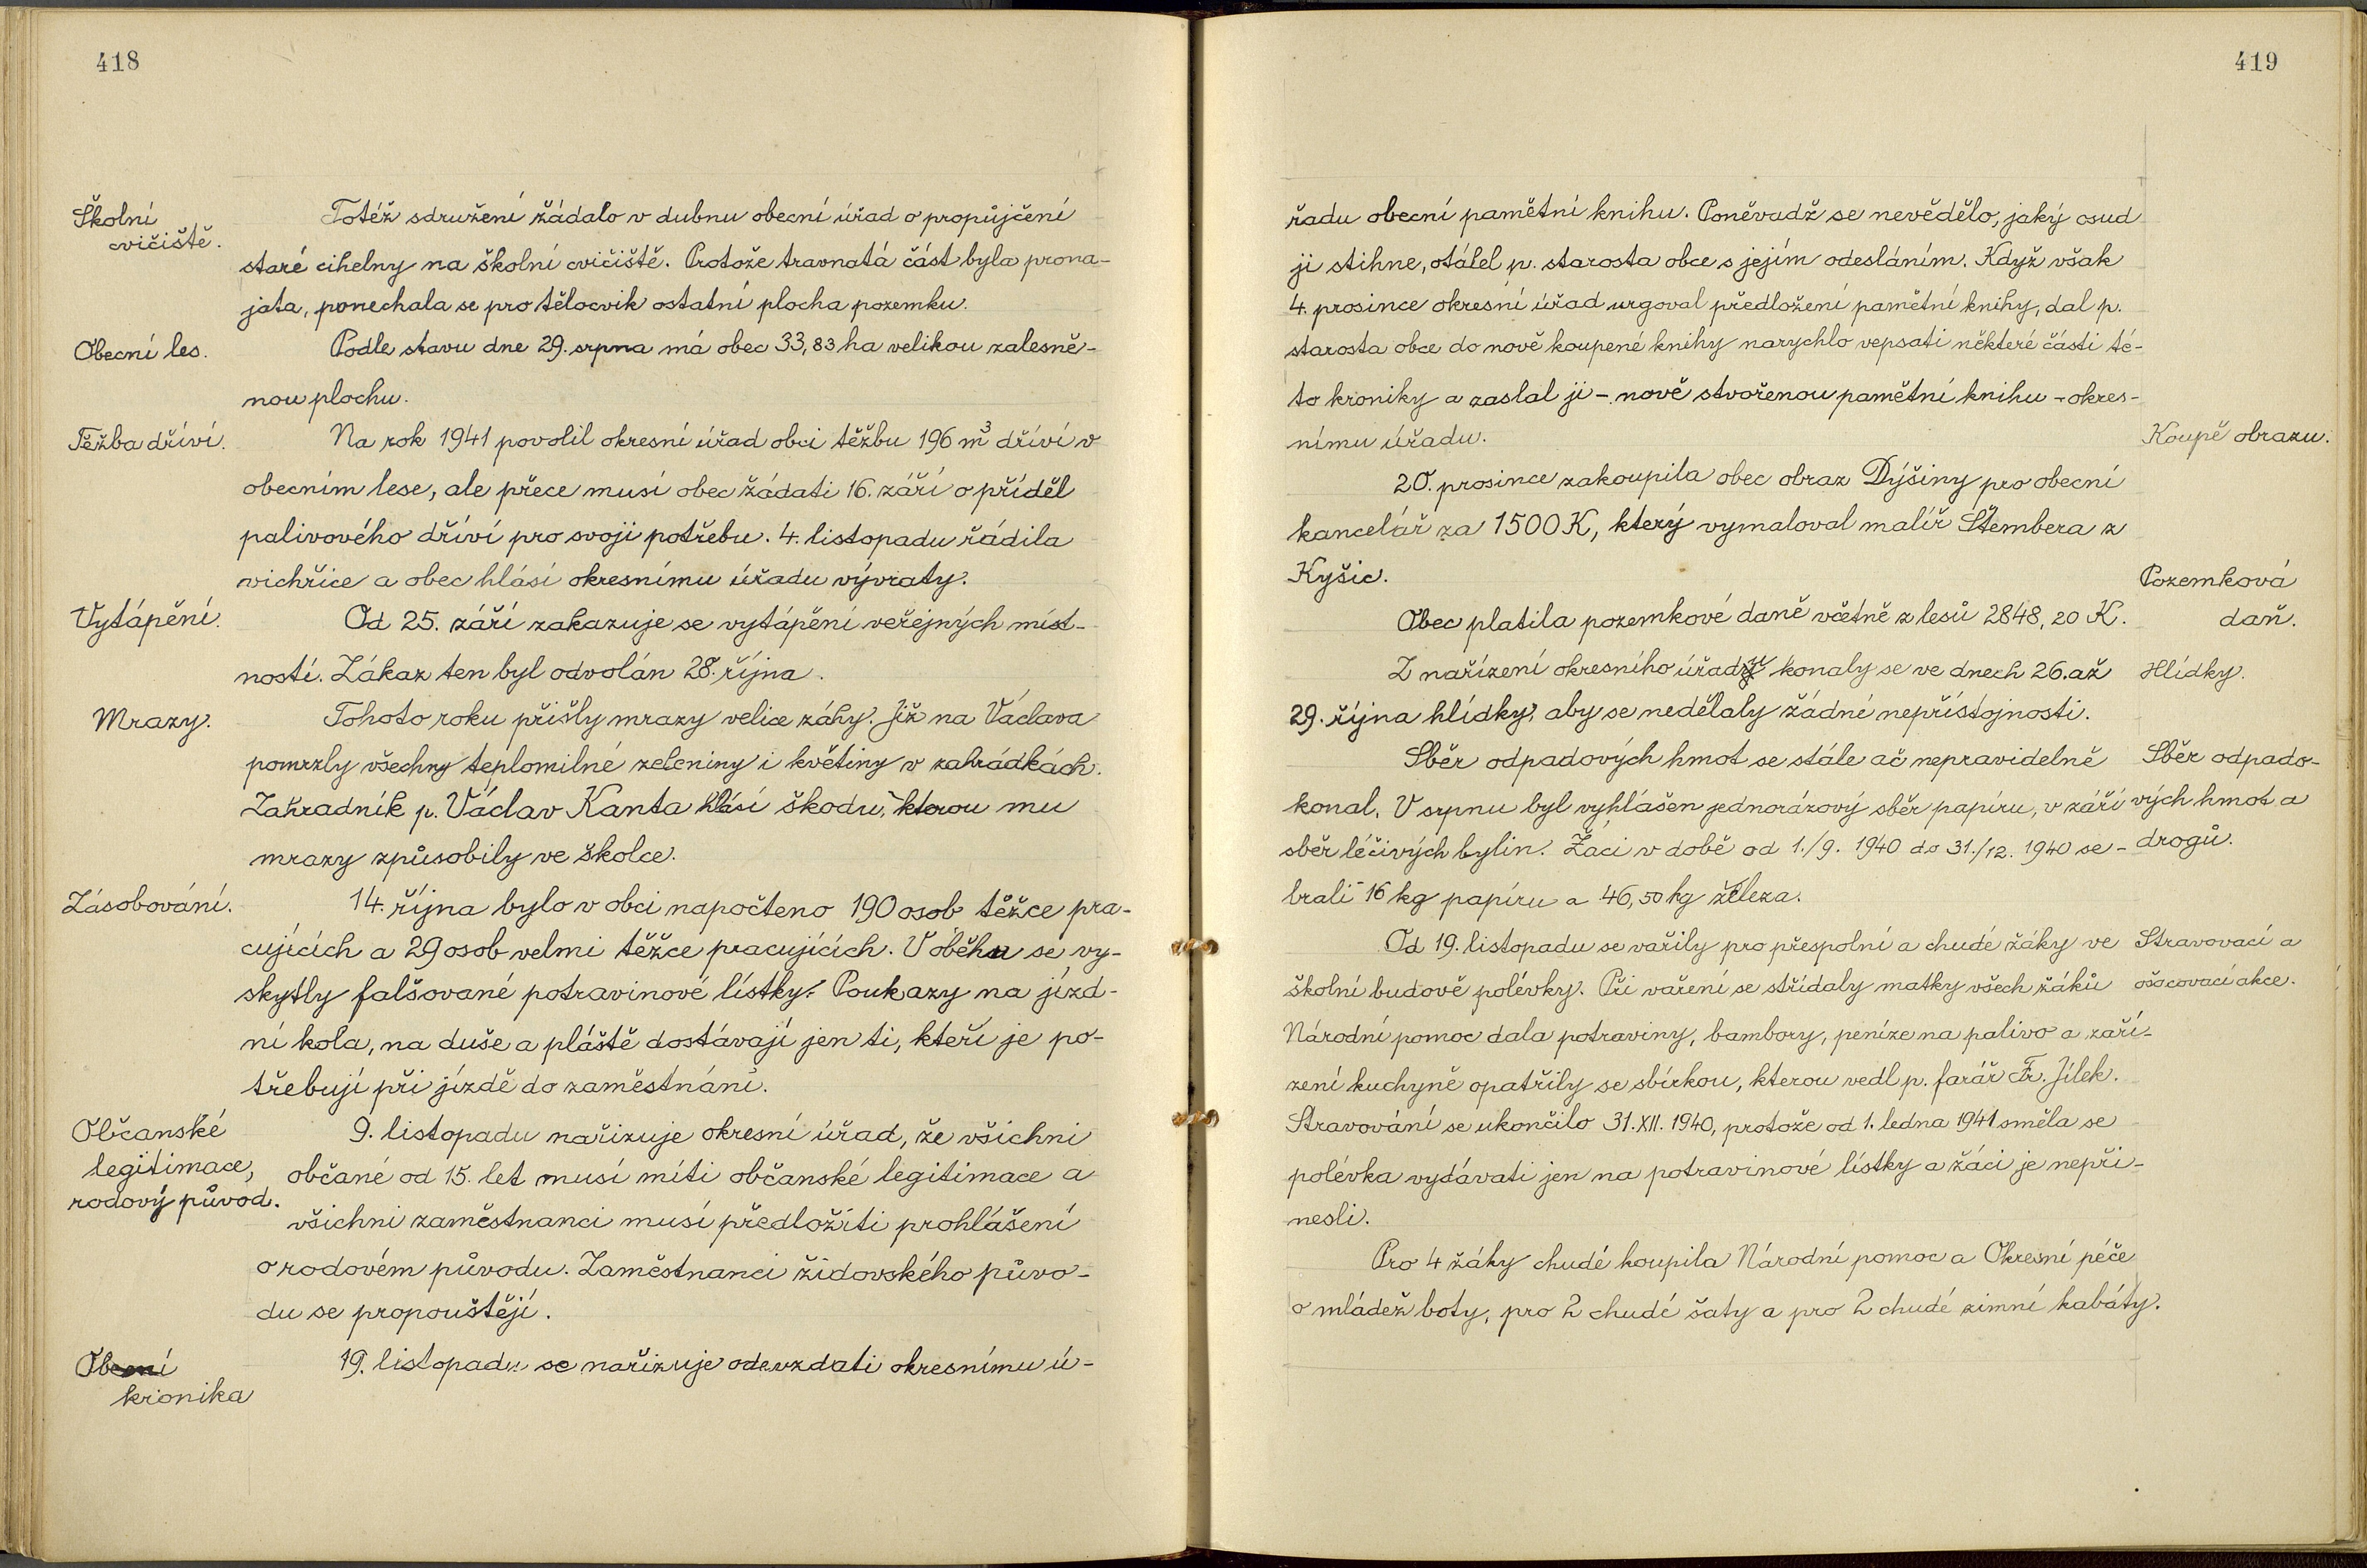 418
Školní
cvičiště.
Totéž sdružení žádalo v dubnu obecní úřad o propůjčení
staré cihelny na školní cvičiště. Protože travnatá část byla prona-
jata, ponechala se pro tělocvik ostatní plocha pozemku.
Obecní les.
Podle stavu dne 29. srpna má obec 33,83 ha velikou zalesně-
nou plochu.
Těžba dříví.
Na rok 1941 povolil okresní úřad obci těžbu 196 m³ dříví v
obecním lese, ale přece musí obec žádati 16. září o příděl
palivového dříví pro svoji potřebu. 4. listopadu řádila
vichřice a obec hlásí okresnímu úřadu vývraty.
Vytápění.
Od 25. září zakazuje se vytápění veřejných míst-
ností. Zákaz ten byl odvolán 28. října.
Mrazy.
Tohoto roku přišly mrazy velice záhy. Již na Václava
pomrzly všechny teplomilné zeleniny i květiny v zahrádkách.
Zahradník p. Václav Kanta hlásí škodu, kterou mu
mrazy způsobily ve školce.
Zásobování.
14. října bylo v obci napočteno 190 osob těžce pra-
cujících a 29 osob velmi těžce pracujících. V oběhu se vy-
skytly falšované potravinové lístky. Poukazy na jízd-
ní kola, na duše a pláště dostávají jen ti, kteří je po-
třebují při jízdě do zaměstnání.
Občanské
legitimace,
rodový původ.
9. listopadu nařizuje okresní úřad, že všichni
občané od 15. let musí míti občanské legitimace a
všichni zaměstnanci musí předložiti prohlášení
o rodovém původu. Zaměstnanci židovského původ-
du se propouštějí.
Obecní
kronika
19. listopadu se nařizuje odevzdati okresnímu ú-
419
řadu obecní pamětní knihu. Poněvadž se nevědělo, jaký osud
ji stihne, otálel p. starosta obce s jejím odesláním. Když však
4. prosince okresní úřad urgoval předložení pamětní knihy, dal p.
starosta obce do nově koupené knihy narychlo vepsati některé části té-
to kroniky a zaslal ji - nově stvořenou pamětní knihu - okres-
nímu úřadu.
Koupě obrazu.
20. prosince zakoupila obec obraz Dýšiny pro obecní
kancelář za 1500 K, který vymaloval malíř Štembera z
Kyšic.
Pozemková
daň.
Obec platila pozemkové daně včetně z lesů 2848,20 K.
Z nařízení okresního úřadu konaly se ve dnech 26. až
Hlídky.
29. října hlídky, aby se nedělaly žádné nepřístojnosti.
Sběr odpadových hmot se stále ač nepravidelně
Sběr odpado-
konal. V srpnu byl vyhlášen jednorázový sběr papíru, v září
vých hmot a
sběr léčivých bylin. Žáci v době od 1./9. 1940 do 31./12. 1940 se-
drogů.
brali 16 kg papíru a 46,50 kg železa.
Od 19. listopadu se vařily pro přespolní a chudé žáky ve
Stravovací a
školní budově polévky. Při vaření se střídaly matky všech žáků
ošacovací akce.
Národní pomoc dala potraviny, bambory, peníze na palivo a zaří-
zení kuchyně opatřily se sbírkou, kterou vedl p. farář Fr. Jílek.
Stravování se ukončilo 31. XII. 1940, protože od 1. ledna 1941 směla se
polévka vydávati jen na potravinové lístky a žáci je nepři-
nesli.
Pro 4 žáky chudé koupila Národní pomoc a Okresní péče
o mládež boty, pro 2 chudé šaty a pro 2 chudé zimní kabáty.